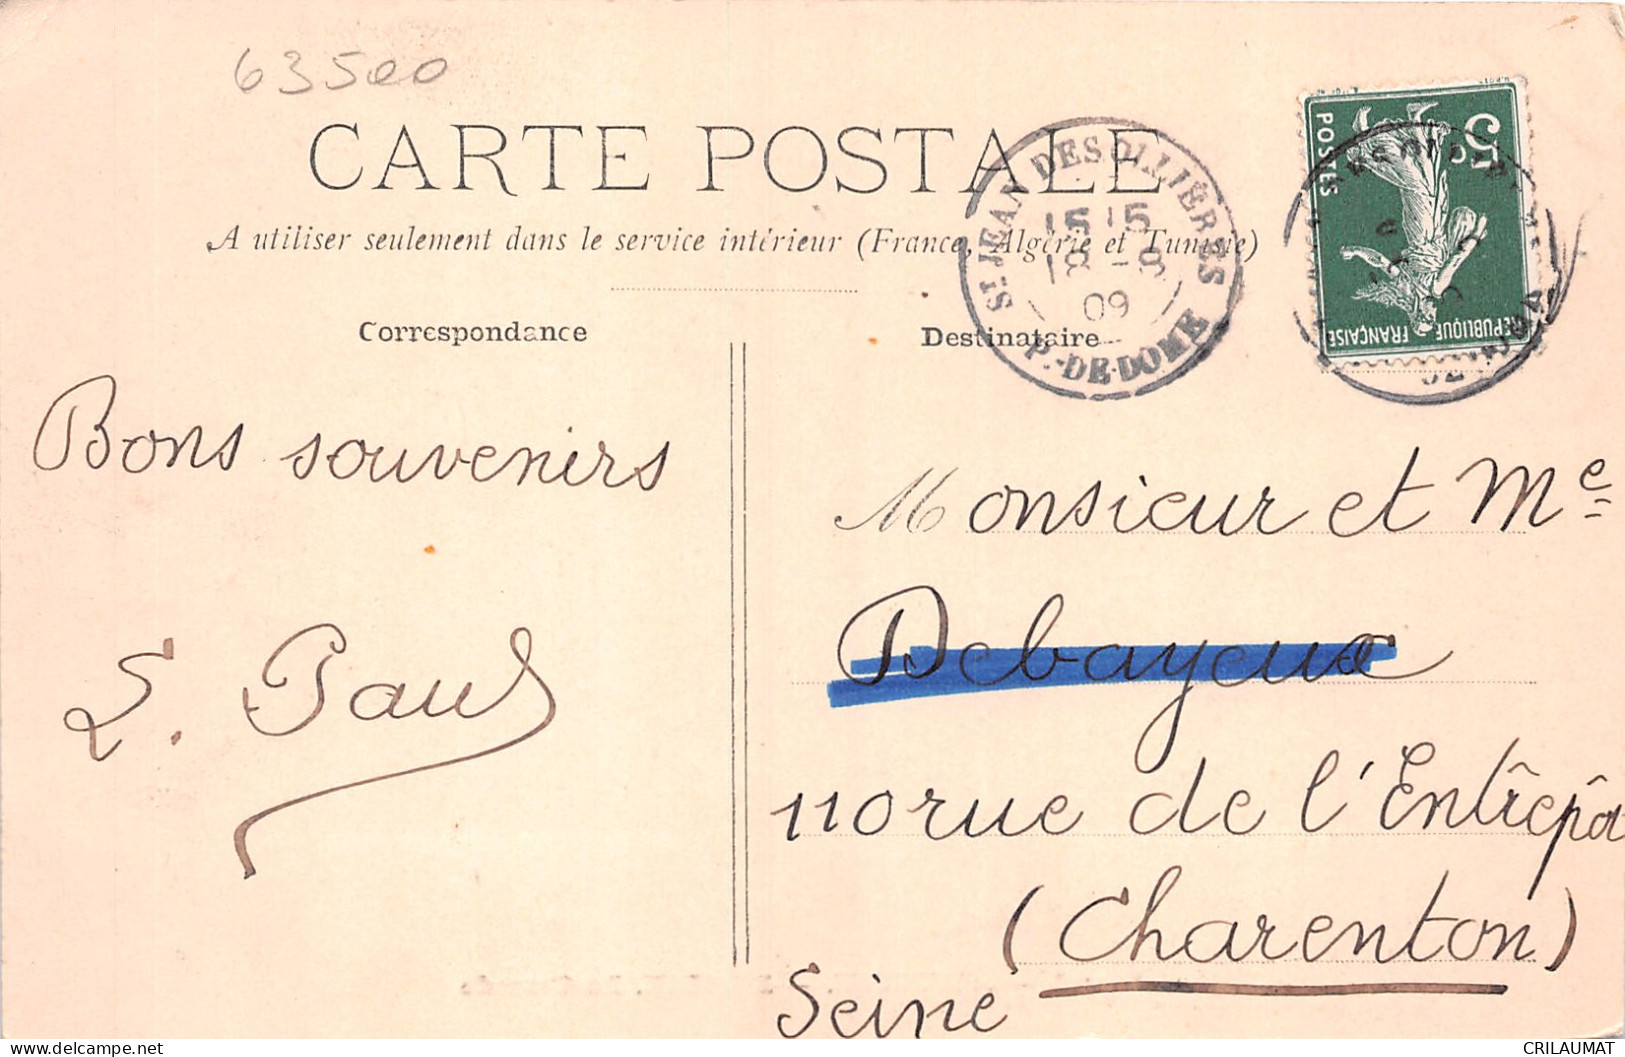 63500
CARTE POSTALE
A utiliser seulement dans le service intérieur (France, Algérie et Tunisie)
Correspondance
Destinataire
ST. JEAN DES OLLIÈRES
15 15
18 -9
09
P.-DE-DOME
5c
POSTES
REPUBLIQUE FRANÇAISE
Bons souvenirs
L. Paul
Monsieur et Me
Debayeux
110 rue de l'Entrêpôt
(Charenton)
Seine
delcampe.net
CRILAUMAT